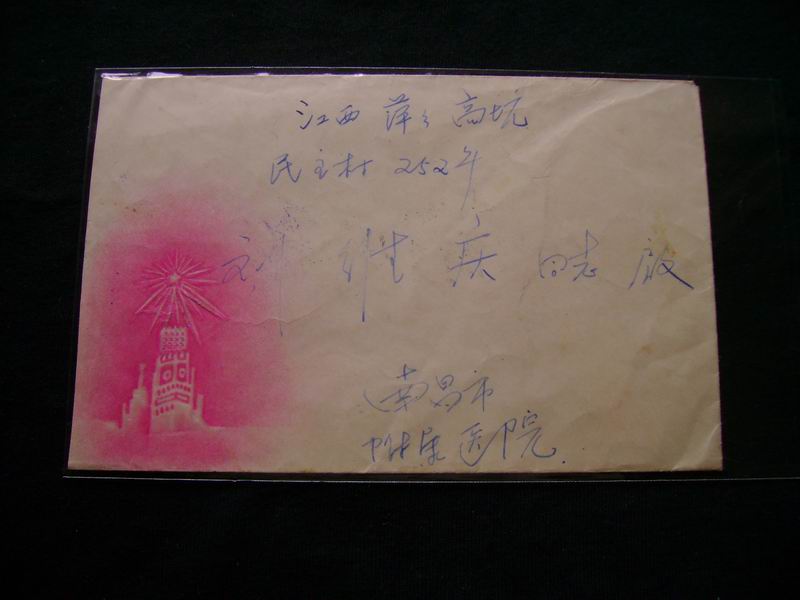 江西 萍乡 高坑
民主村 252号
刘 维 庆 同志 启
南昌市
附属医院